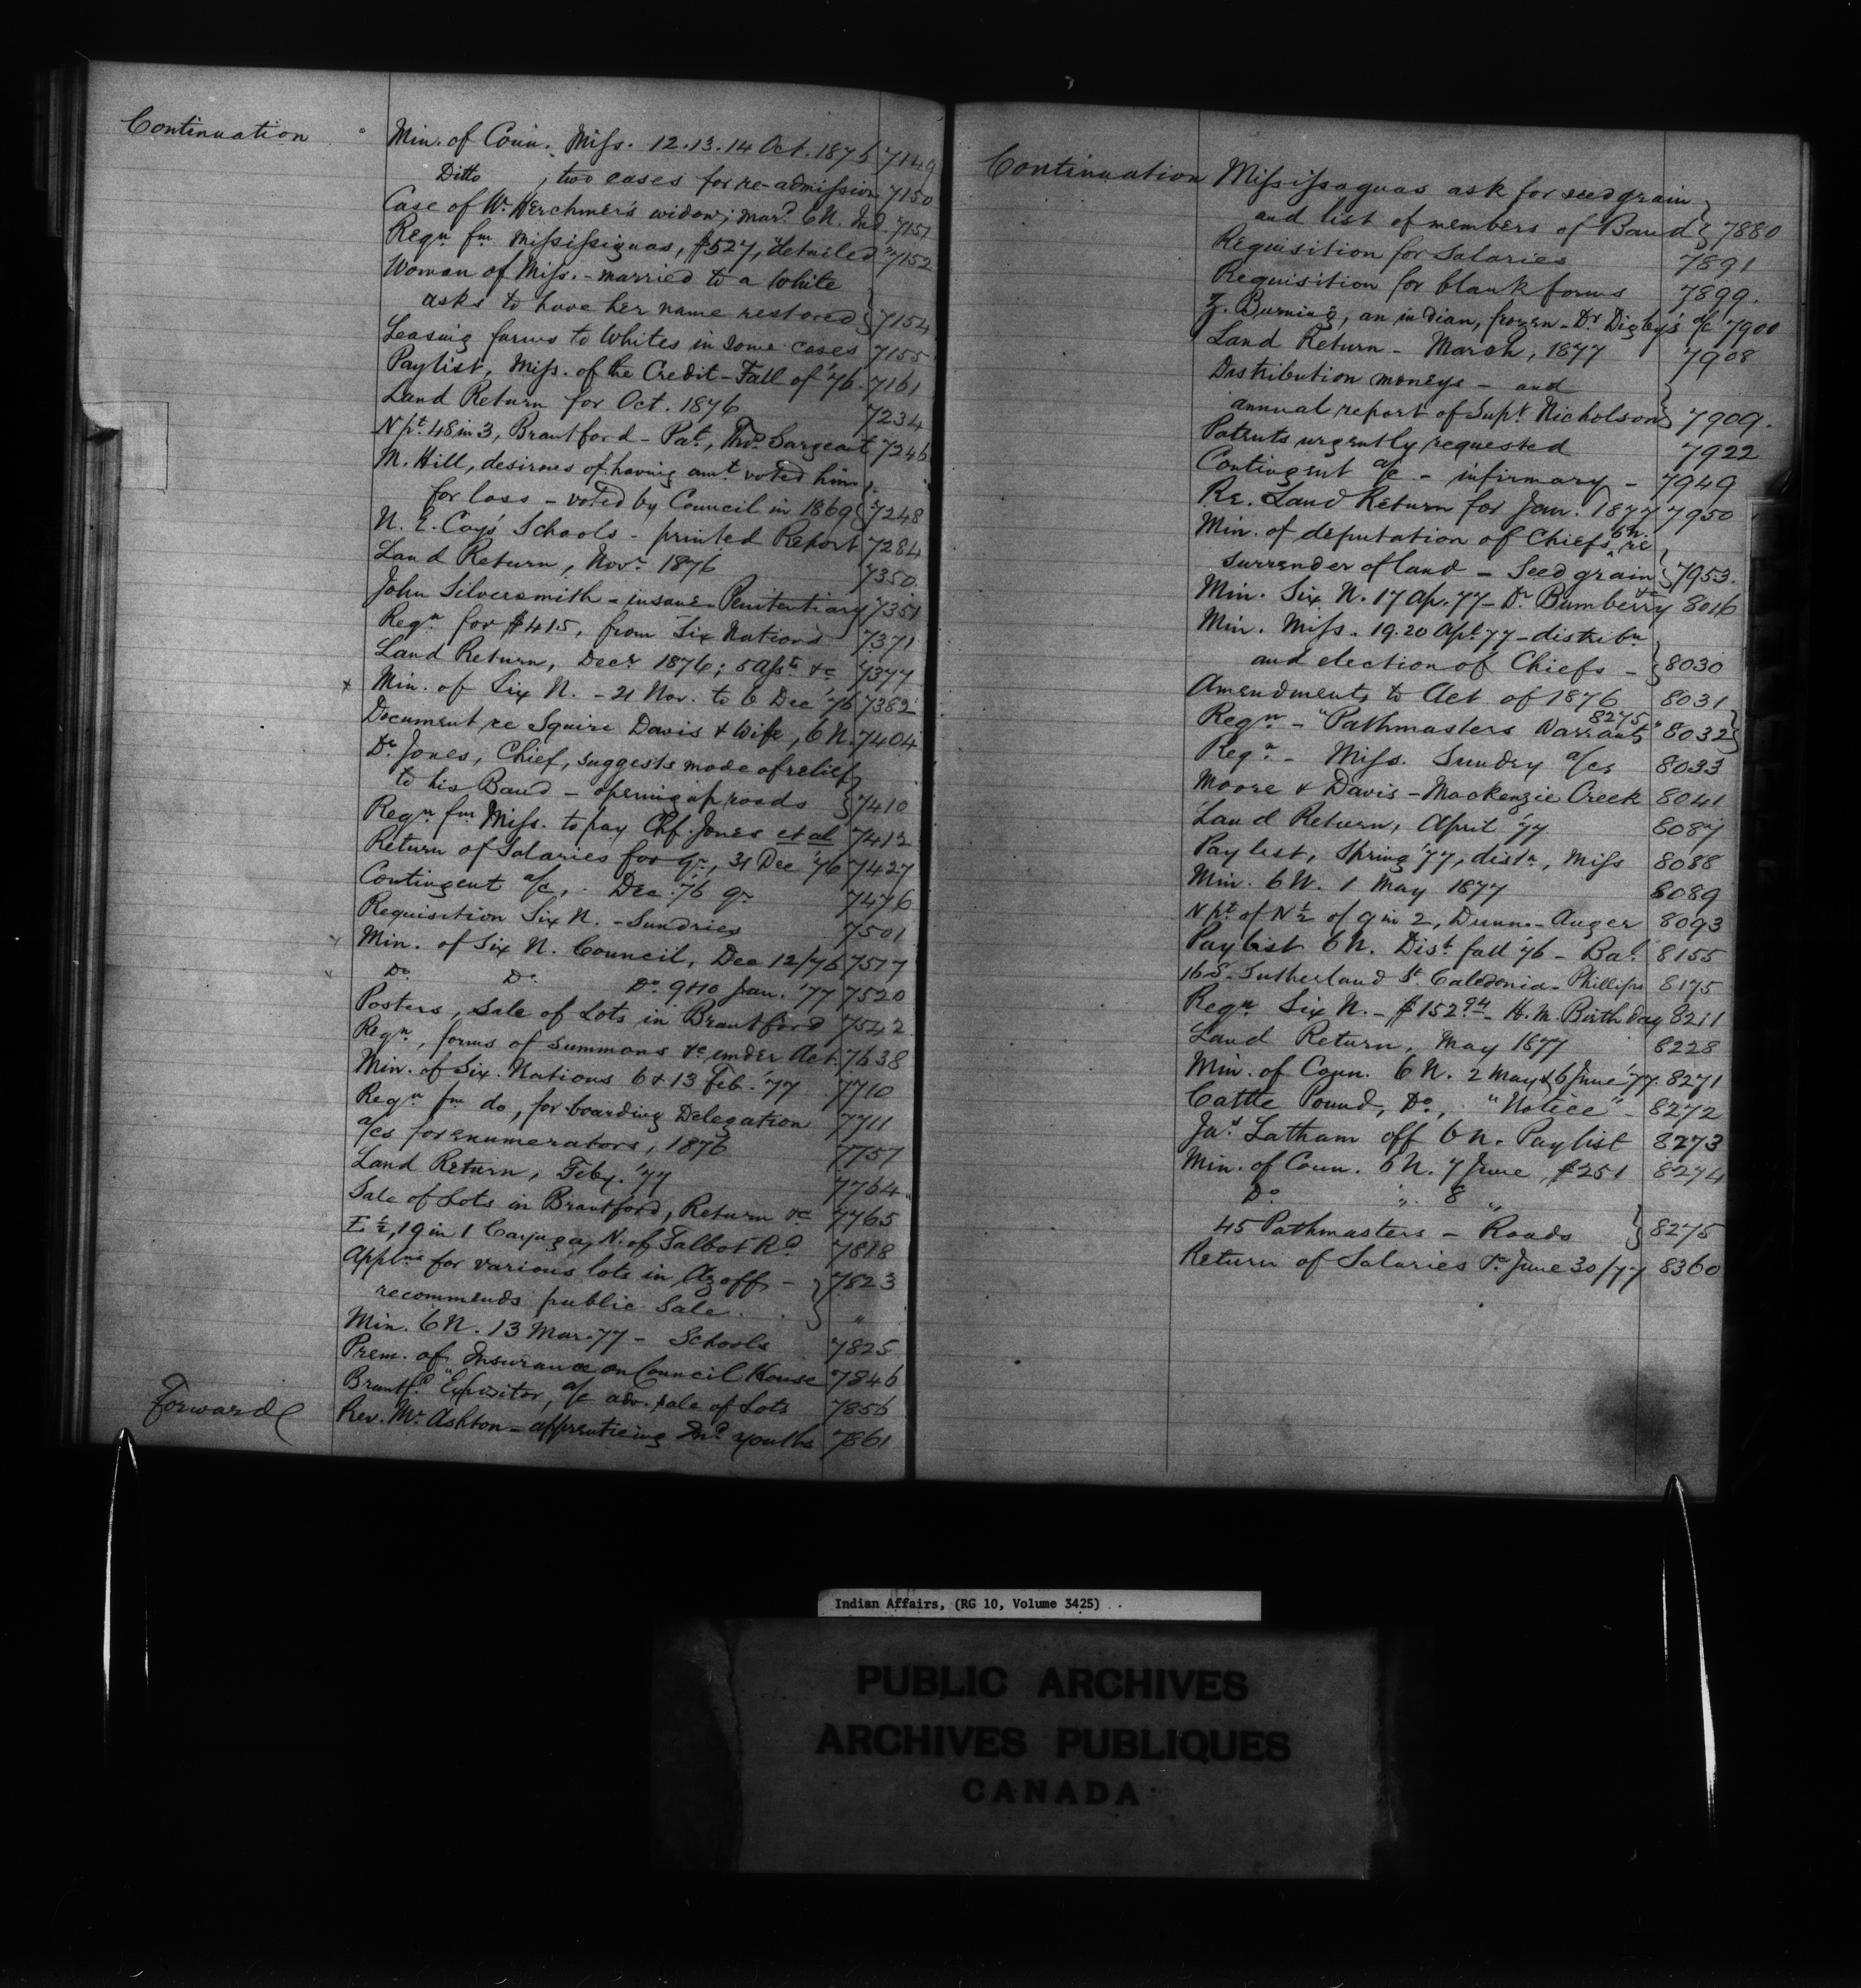 Continuation
Min. of Coun. Miss. 12.13.14 Oct. 1876 7149
Ditto , two cases for re-admission 7150
Case of Wm. Kerchmer's widow; mard. 6N. Ind. 7151
Reqn. fm. Mississiguas, $527, "detailed" 7152
Woman of Miss. - married to a White
asks to have her name restored } 7154
Leasing farms to Whites in some cases 7155
Paylist, Miss. of the Credit - Fall of '76. 7161
Land Return for Oct. 1876 7234
N pt. 48 in 3, Brantford - Pat., Thos. Sargeant 7246
M. Hill, desirous of having amt. voted him
for loss - voted by Council in 1869 } 7248
N. E. Coys' Schools - printed Report 7284
Land Return, Novr. 1876 7350
John Silversmith - insane - Penitentiary 7351
Reqn. for $415, from Six Nations 7371
Land Return, Decr. 1876; 5 Assts. &c 7377
x Min. of Six N. - 21 Nov. to 6 Dec '76 7382
Document re Squire Davis & Wife, 6 N. 7404
Dr. Jones, Chief, suggests mode of relief
to his Band - opening up roads } 7410
Reqn. fm. Miss. to pay Chf. Jones et al 7412
Return of Salaries for qr., 31 Dec '76 7427
Contingent a/c, . Dec. '76 qr. 7476
Requisition Six N. - Sundries 7501
Min. of Six N. Council, Dec 12/76 7517
Do. Do. Do. 9 & 10 Jan. '77 7520
Posters, Sale of Lots in Brantford 7542
Reqn., forms of summons &c under Act. 7638
Min. of Six Nations 6 & 13 Feb. '77 7710
Reqn. fm. do, for boarding Delegation 7711
a/cs for enumerators, 1876 7757
Land Return, Feby. '77 7764
Sale of Lots in Brantford, Return &c 7765
E 1/2, 19 in 1 Cayuga, N. of Talbot Rd. 7818
Applns. for various lots in Azoff - } 7823
recommends public Sale. . . } "
Min. 6N. 13 Mar. 77 - Schools 7825
Prem. of Insurance on Council House 7846
Brantfd. "Expositor, a/c adv. sale of Lots 7856
Rev. Mr. Ashton - apprenticing Ind. youths 7861
Forward
Continuation
Missisaguas ask for seed grain
and list of members of Band } 7880
Requisition for Salaries 7891
Requisition for blank forms 7899.
Z. Burning, an indian, frozen - Dr. Digby's a/c 7900
Land Return - March, 1877 7908
Distribution moneys - and
annual report of Supt. Nicholson } 7909.
Patents urgently requested 7922
Contingent a/c - infirmary - 7949
Re. Land Return for Jan. 1877 7950
Min. of deputation of Chiefs 6N., re
surrender of land - Seed grain } 7953.
Min. Six N. 17 Ap. 77 - Dr. Bumberry &c 8016
Min. Miss. 19.20 Apl. 77 - distribn.
and election of Chiefs - } 8030
Amendments to Act of 1876 8031
Reqn. - "Pathmasters Warrants" 8275 8032 }
Reqn. - Miss. Sundry a/cs 8033
Moore & Davis - Mackenzie Creek 8041
Land Return, April '77 8087
Paylist, Spring '77, distn., Miss 8088
Min. 6N. 1 May 1877 8089
N pt. of N 1/2 of 9 in 2, Dunn. - Auger 8093
Paylist 6N. Dist. fall '76 - Bal. 8155
16 S. Sutherland St. Caledonia - Phillips 8175
Reqn. Six N. - $152.94 - H. M. Birth day 8211
Land Return, May 1877 8228
Min. of Coun. 6 N. 2 May & 6 June '77. 8271
Cattle Pound, Do., "Notice" - 8272
Jas. Latham off 6 N. Paylist 8273
Min. of Coun. 6 N. 7 June, $251 8274
Do. " 8 "
45 Pathmasters - Roads } 8275
Return of Salaries to June 30/77 8360
Indian Affairs, (RG 10, Volume 3425)
PUBLIC ARCHIVES
ARCHIVES PUBLIQUES
CANADA